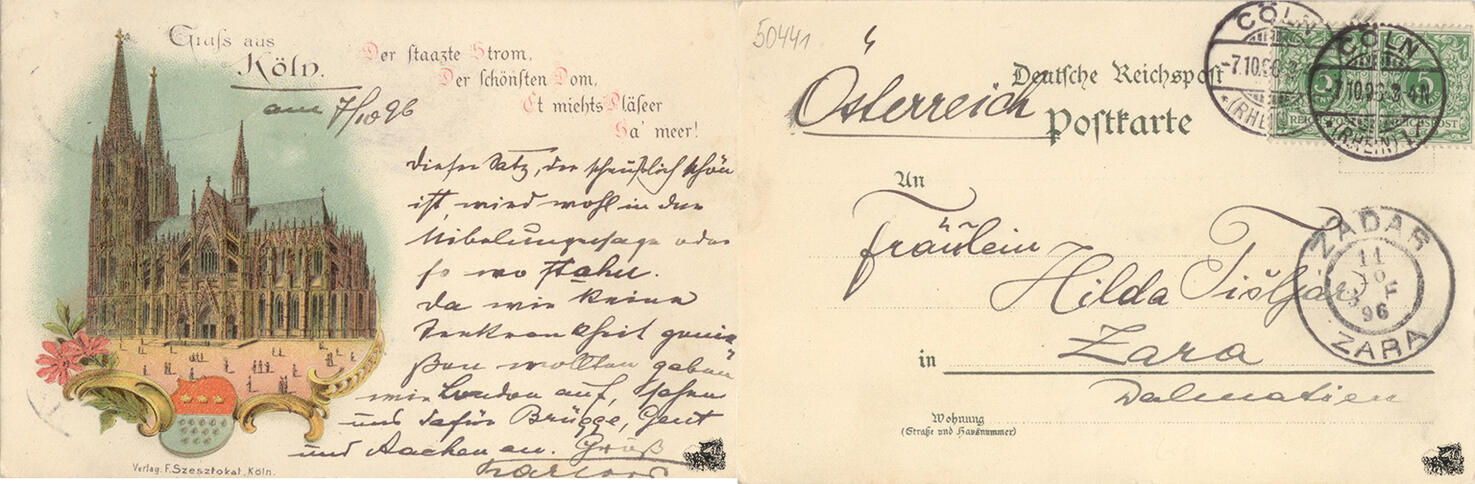 Gruss aus
Köln.
am 7/10 96
Der staazte Strom,
Der schönsten Dom,
Et miehts Pläseer
Ha' meer!
dieser Satz, der scheußlich schön
ist, wird wohl in der
Nibelungensage oder
so wo stahn.
Da wir keine
Seekrankheit genie
ßen wollten gaben
wir London auf, sahen
uns dafür Brügge, Gent
und Aachen an. Gruß
Verlag: F. Szesztokat, Köln.
50441
Deutsche Reichspost
Österreich
Postkarte
An
Fräulein
Hilda Tišljar
in Zara
Dalmatien
Wohnung
(Straße und Hausnummer)
CÖLN
-7.10.96.3-
(RHEIN)
CÖLN
7.10.96.3-4N
(RHEIN)
5
REICHSPOST
REICHSPOST
ZADAR
11
10
96
ZARA